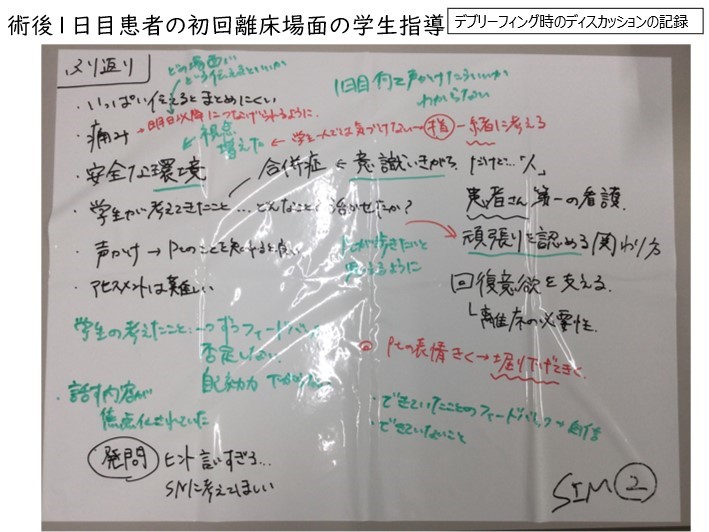 術後1日目患者の初回離床場面の学生指導
デブリーフィング時のディスカッションの記録
ふり返り
どの場面が
どう伝えるといいか
1日目何て声かけたらいいか
わからない
・いっぱい伝えるとまとめにくい
・痛み → 明日以降につなげられるように
視点
増えた ← 学生一人では気づけない→指 一緒に考える
・安全な環境
合併症 ← 意識いきがち だけど…「人」
・学生が考えてきたこと…どんなこと?活かせたか?
患者さん第一の看護
声かけ → Ptのことを知ると良い
頑張りを認める関わり方
歩きたいと
思えるように
・アセスメントは難しい
回復意欲を支える
離床の必要性
学生の考えたこと 一つずつフィードバック
否定しない
自己効力
Ptの表情きく→掘り下げてきく
・話す内容が
焦点化されていた
・できていたことのフィードバック→自信
・できていないこと
発問 ヒント言いすぎる…
SNに考えてほしい
SIM 2